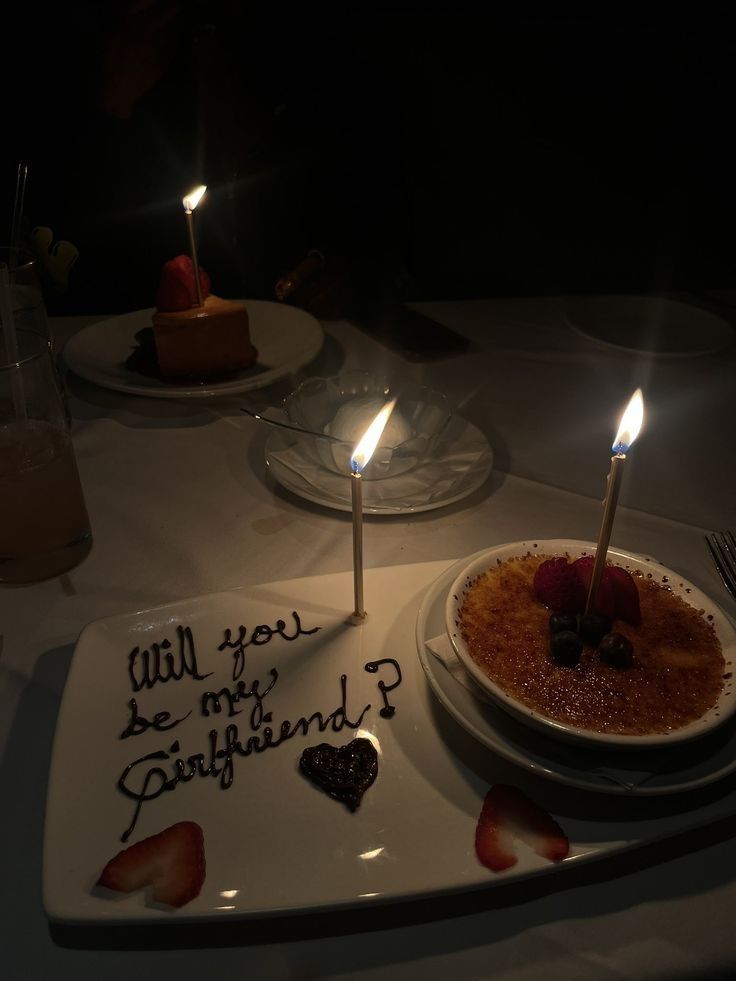 Will you
be my
Girlfriend?